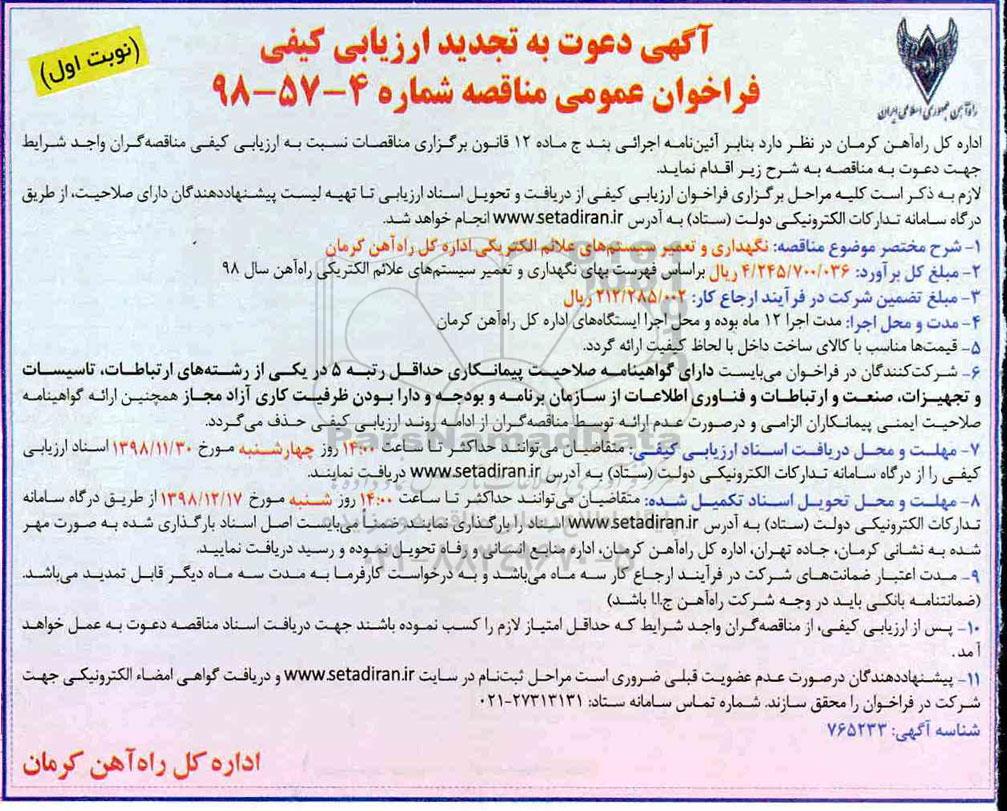 راه‌آهن جمهوری اسلامی ایران
(نوبت اول)
آگهی دعوت به تجدید ارزیابی کیفی
فراخوان عمومی مناقصه شماره ۴-۵۷-۹۸
اداره کل راه‌آهن کرمان در نظر دارد بنابر آئین‌نامه اجرائی بند ج ماده ۱۲ قانون برگزاری مناقصات نسبت به ارزیابی کیفی مناقصه‌گران واجد شرایط
جهت دعوت به مناقصه به شرح زیر اقدام نماید.
لازم به ذکر است کلیه مراحل برگزاری فراخوان ارزیابی کیفی از دریافت و تحویل اسناد ارزیابی تا تهیه لیست پیشنهاددهندگان دارای صلاحیت، از طریق
درگاه سامانه تدارکات الکترونیکی دولت (ستاد) به آدرس www.setadiran.ir انجام خواهد شد.
۱- شرح مختصر موضوع مناقصه: نگهداری و تعمیر سیستم‌های علائم الکتریکی اداره کل راه‌آهن کرمان
۲- مبلغ کل برآورد: ۴/۲۴۵/۷۰۰/۰۳۶ ریال براساس فهرست بهای نگهداری و تعمیر سیستم‌های علائم الکتریکی راه‌آهن سال ۹۸
۳- مبلغ تضمین شرکت در فرآیند ارجاع کار: ۲۱۲/۲۸۵/۰۰۲ ریال
۴- مدت و محل اجرا: مدت اجرا ۱۲ ماه بوده و محل اجرا ایستگاه‌های اداره کل راه‌آهن کرمان
۵- قیمت‌ها مناسب با کالای ساخت داخل با لحاظ کیفیت ارائه گردد.
۶- شرکت‌کنندگان در فراخوان می‌بایست دارای گواهینامه صلاحیت پیمانکاری حداقل رتبه ۵ در یکی از رشته‌های ارتباطات، تاسیسات
و تجهیزات، صنعت و ارتباطات و فناوری اطلاعات از سازمان برنامه و بودجه و دارا بودن ظرفیت کاری آزاد مجاز همچنین ارائه گواهینامه
صلاحیت ایمنی پیمانکاران الزامی و درصورت عدم ارائه توسط مناقصه‌گران از ادامه روند ارزیابی کیفی حذف می‌گردد.
۷- مهلت و محل دریافت اسناد ارزیابی کیفی: متقاضیان می‌توانند حداکثر تا ساعت ۱۴:۰۰ روز چهارشنبه مورخ ۱۳۹۸/۱۱/۳۰ اسناد ارزیابی
کیفی را از درگاه سامانه تدارکات الکترونیکی دولت (ستاد) به آدرس www.setadiran.ir دریافت نمایند.
۸- مهلت و محل تحویل اسناد تکمیل شده: متقاضیان می‌توانند حداکثر تا ساعت ۱۴:۰۰ روز شنبه مورخ ۱۳۹۸/۱۲/۱۷ از طریق درگاه سامانه
تدارکات الکترونیکی دولت (ستاد) به آدرس www.setadiran.ir اسناد را بارگذاری نمایند ضمنا می‌بایست اصل اسناد بارگذاری شده به صورت مهر
شده به نشانی کرمان، جاده تهران، اداره کل راه‌آهن کرمان، اداره منابع انسانی و رفاه تحویل نموده و رسید دریافت نمایید.
۹- مدت اعتبار ضمانت‌های شرکت در فرآیند ارجاع کار سه ماه می‌باشد و به درخواست کارفرما به مدت سه ماه دیگر قابل تمدید می‌باشد.
(ضمانتنامه بانکی باید در وجه شرکت راه‌آهن ج.ا.ا باشد)
۱۰- پس از ارزیابی کیفی، از مناقصه‌گران واجد شرایط که حداقل امتیاز لازم را کسب نموده باشند جهت دریافت اسناد مناقصه دعوت به عمل خواهد
آمد.
۱۱- پیشنهاددهندگان درصورت عدم عضویت قبلی ضروری است مراحل ثبت‌نام در سایت www.setadiran.ir و دریافت گواهی امضاء الکترونیکی جهت
شرکت در فراخوان را محقق سازند. شماره تماس سامانه ستاد: ۲۷۳۱۳۱۳۱-۰۲۱
شناسه آگهی: ۷۶۵۲۳۳
اداره کل راه‌آهن کرمان
ParsNamadData
۰۲۱-۸۸۳۴۹۶۷۰-۵